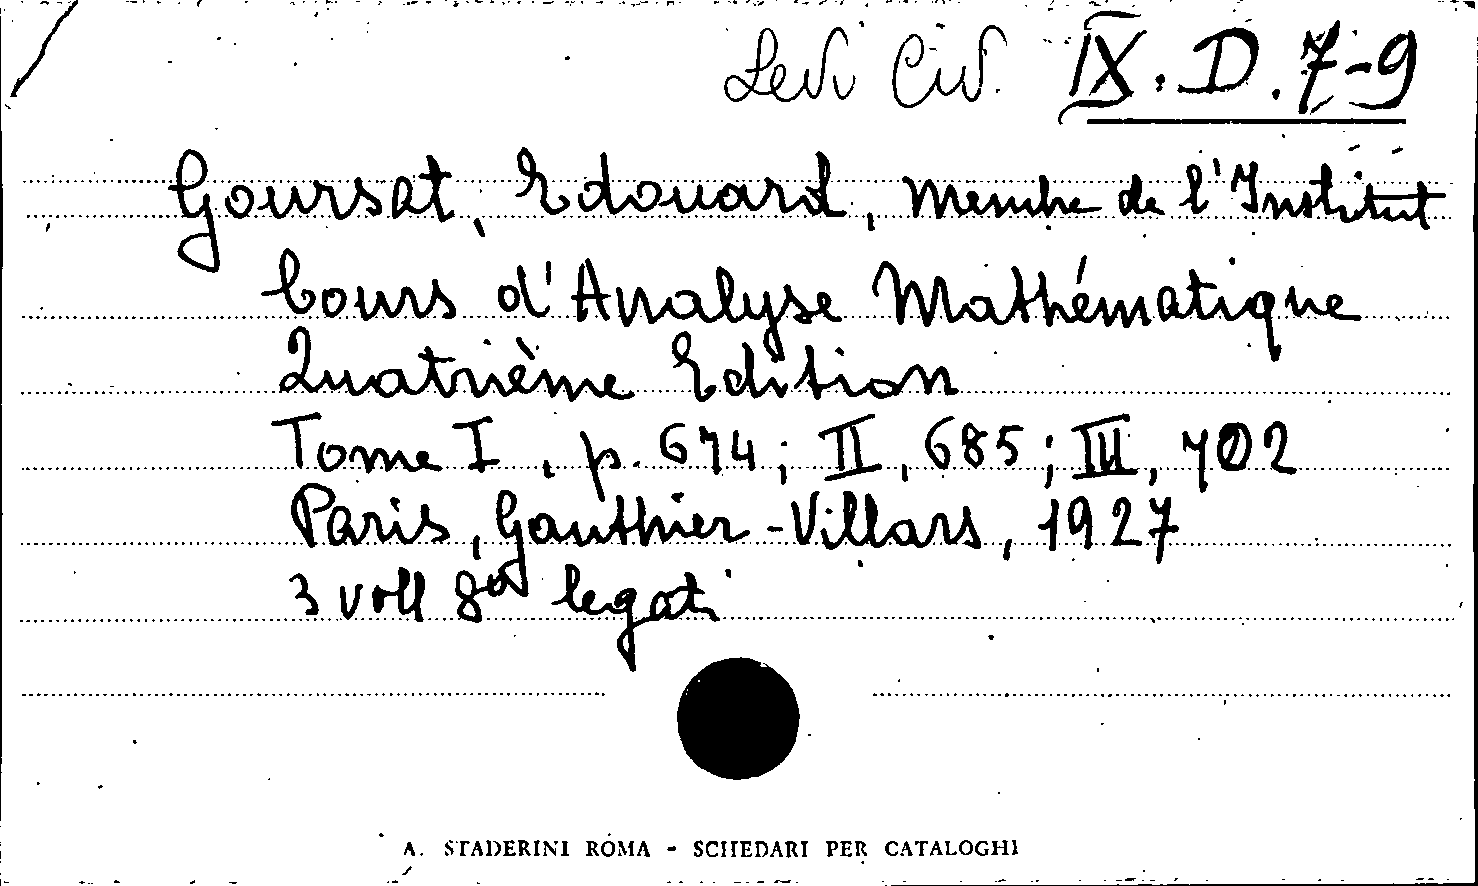 Levi Civ. IX. D. 7-9
Goursat, Edouard, Membre de l'Institut
Cours d'Analyse Mathématique
Quatrième Edition
Tome I, p. 674; II, 685; III, 702
Paris, Gauthier-Villars, 1927
3 voll 8° legati
A. STADERINI ROMA - SCHEDARI PER CATALOGHI